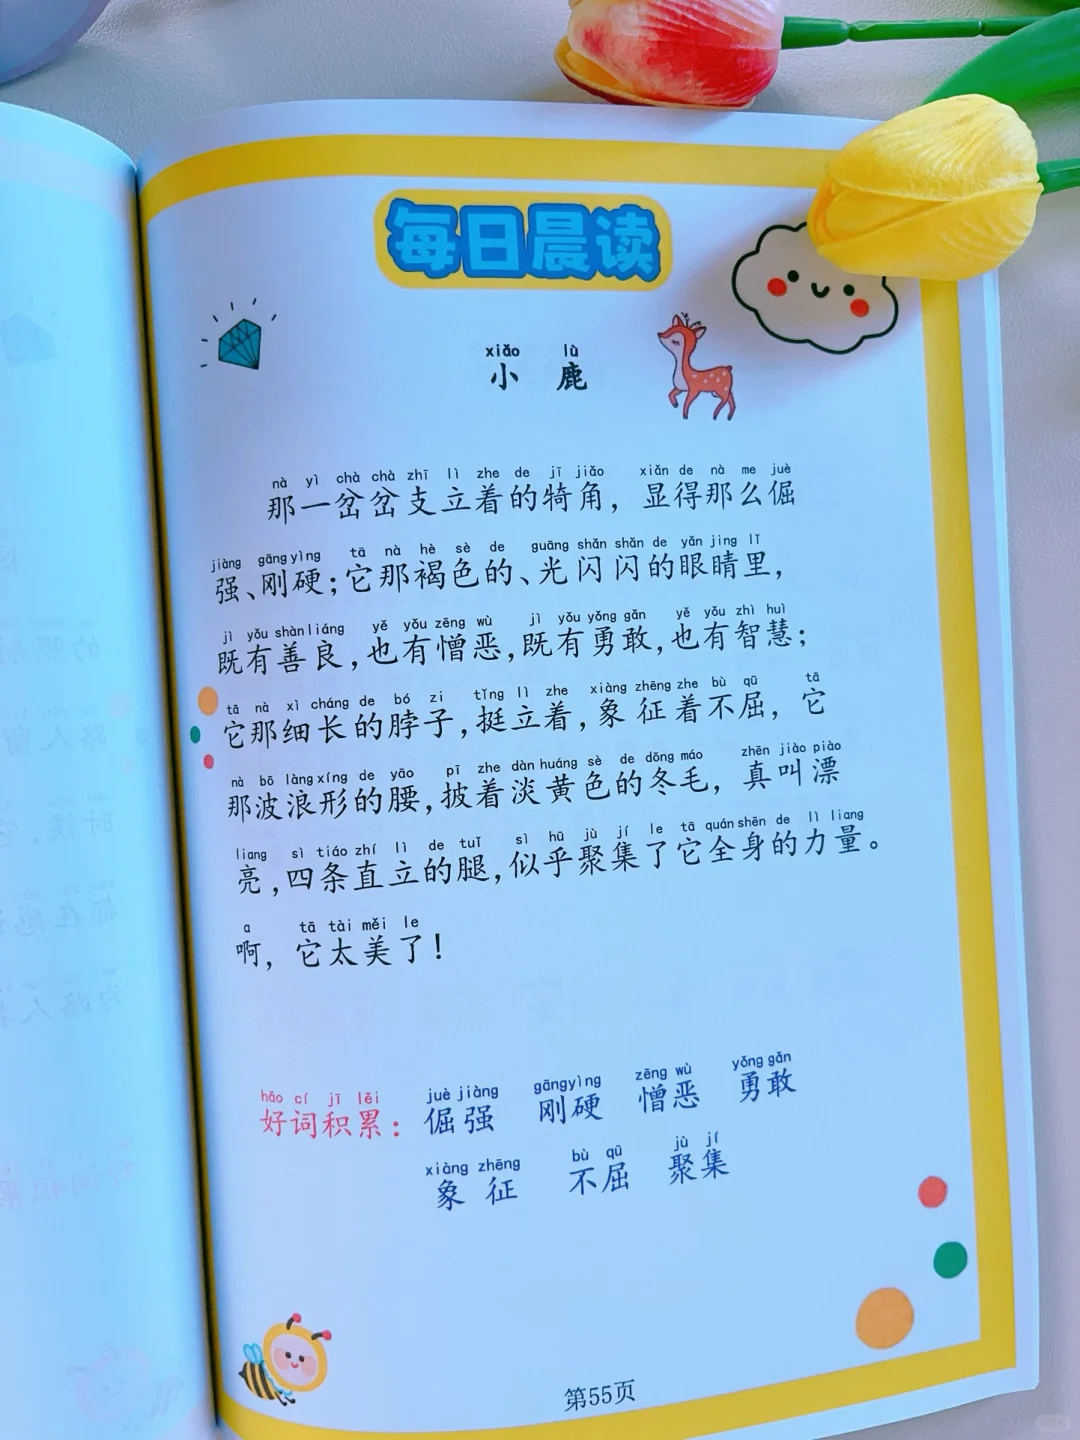 每日晨读
xiǎo lù
小 鹿
nà yì chà chà zhī lì zhe de jī jiǎo xiǎn de nà me juè
那一岔岔支立着的犄角，显得那么倔
jiàng gāng yìng tā nà hè sè de guāng shǎn shǎn de yǎn jing lǐ
强、刚硬；它那褐色的、光闪闪的眼睛里，
jì yǒu shàn liáng yě yǒu zēng wù jì yǒu yǒng gǎn yě yǒu zhì huì
既有善良，也有憎恶，既有勇敢，也有智慧；
tā nà xì cháng de bó zi tǐng lì zhe xiàng zhēng zhe bù qū tā
它那细长的脖子，挺立着，象征着不屈，它
nà bō làng xíng de yāo pī zhe dàn huáng sè de dōng máo zhēn jiào piào
那波浪形的腰，披着淡黄色的冬毛，真叫漂
liang sì tiáo zhí lì de tuǐ sì hū jù jí le tā quán shēn de lì liang
亮，四条直立的腿，似乎聚集了它全身的力量。
a tā tài měi le
啊，它太美了！
hǎo cí jī lěi juè jiàng gāng yìng zēng wù yǒng gǎn
好词积累：倔强 刚硬 憎恶 勇敢
xiàng zhēng bù qū jù jí
象征 不屈 聚集
第55页